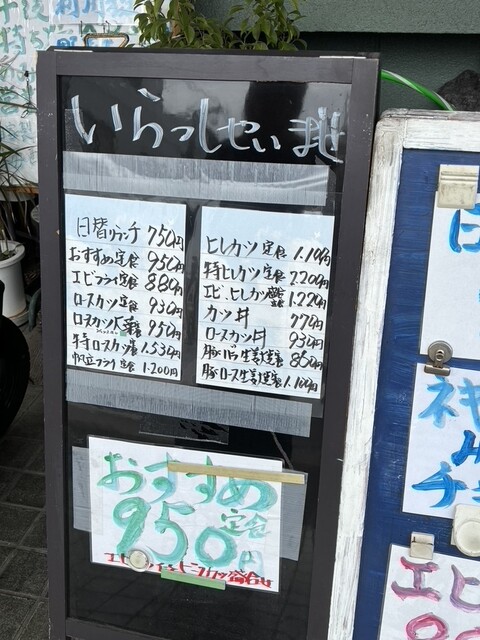 いらっしゃいませ
日替ランチ 750円
おすすめ定食 950円
エビフライ定食 880円
ロースカツ定食 930円
ロースカツ 950円
特ロースカツ定食 1.530円
帆立フライ定食 1.200円
ヒレカツ定食 1.100円
特ヒレカツ定食 2.200円
エビ、ヒレカツ 1.220円
カツ丼 770円
ロースカツ丼 930円
豚バラ生姜焼定食 860円
豚ロース生姜焼定食 1.100円
おすすめ
定食
950円
ヒレカツ盛合せ
エビ